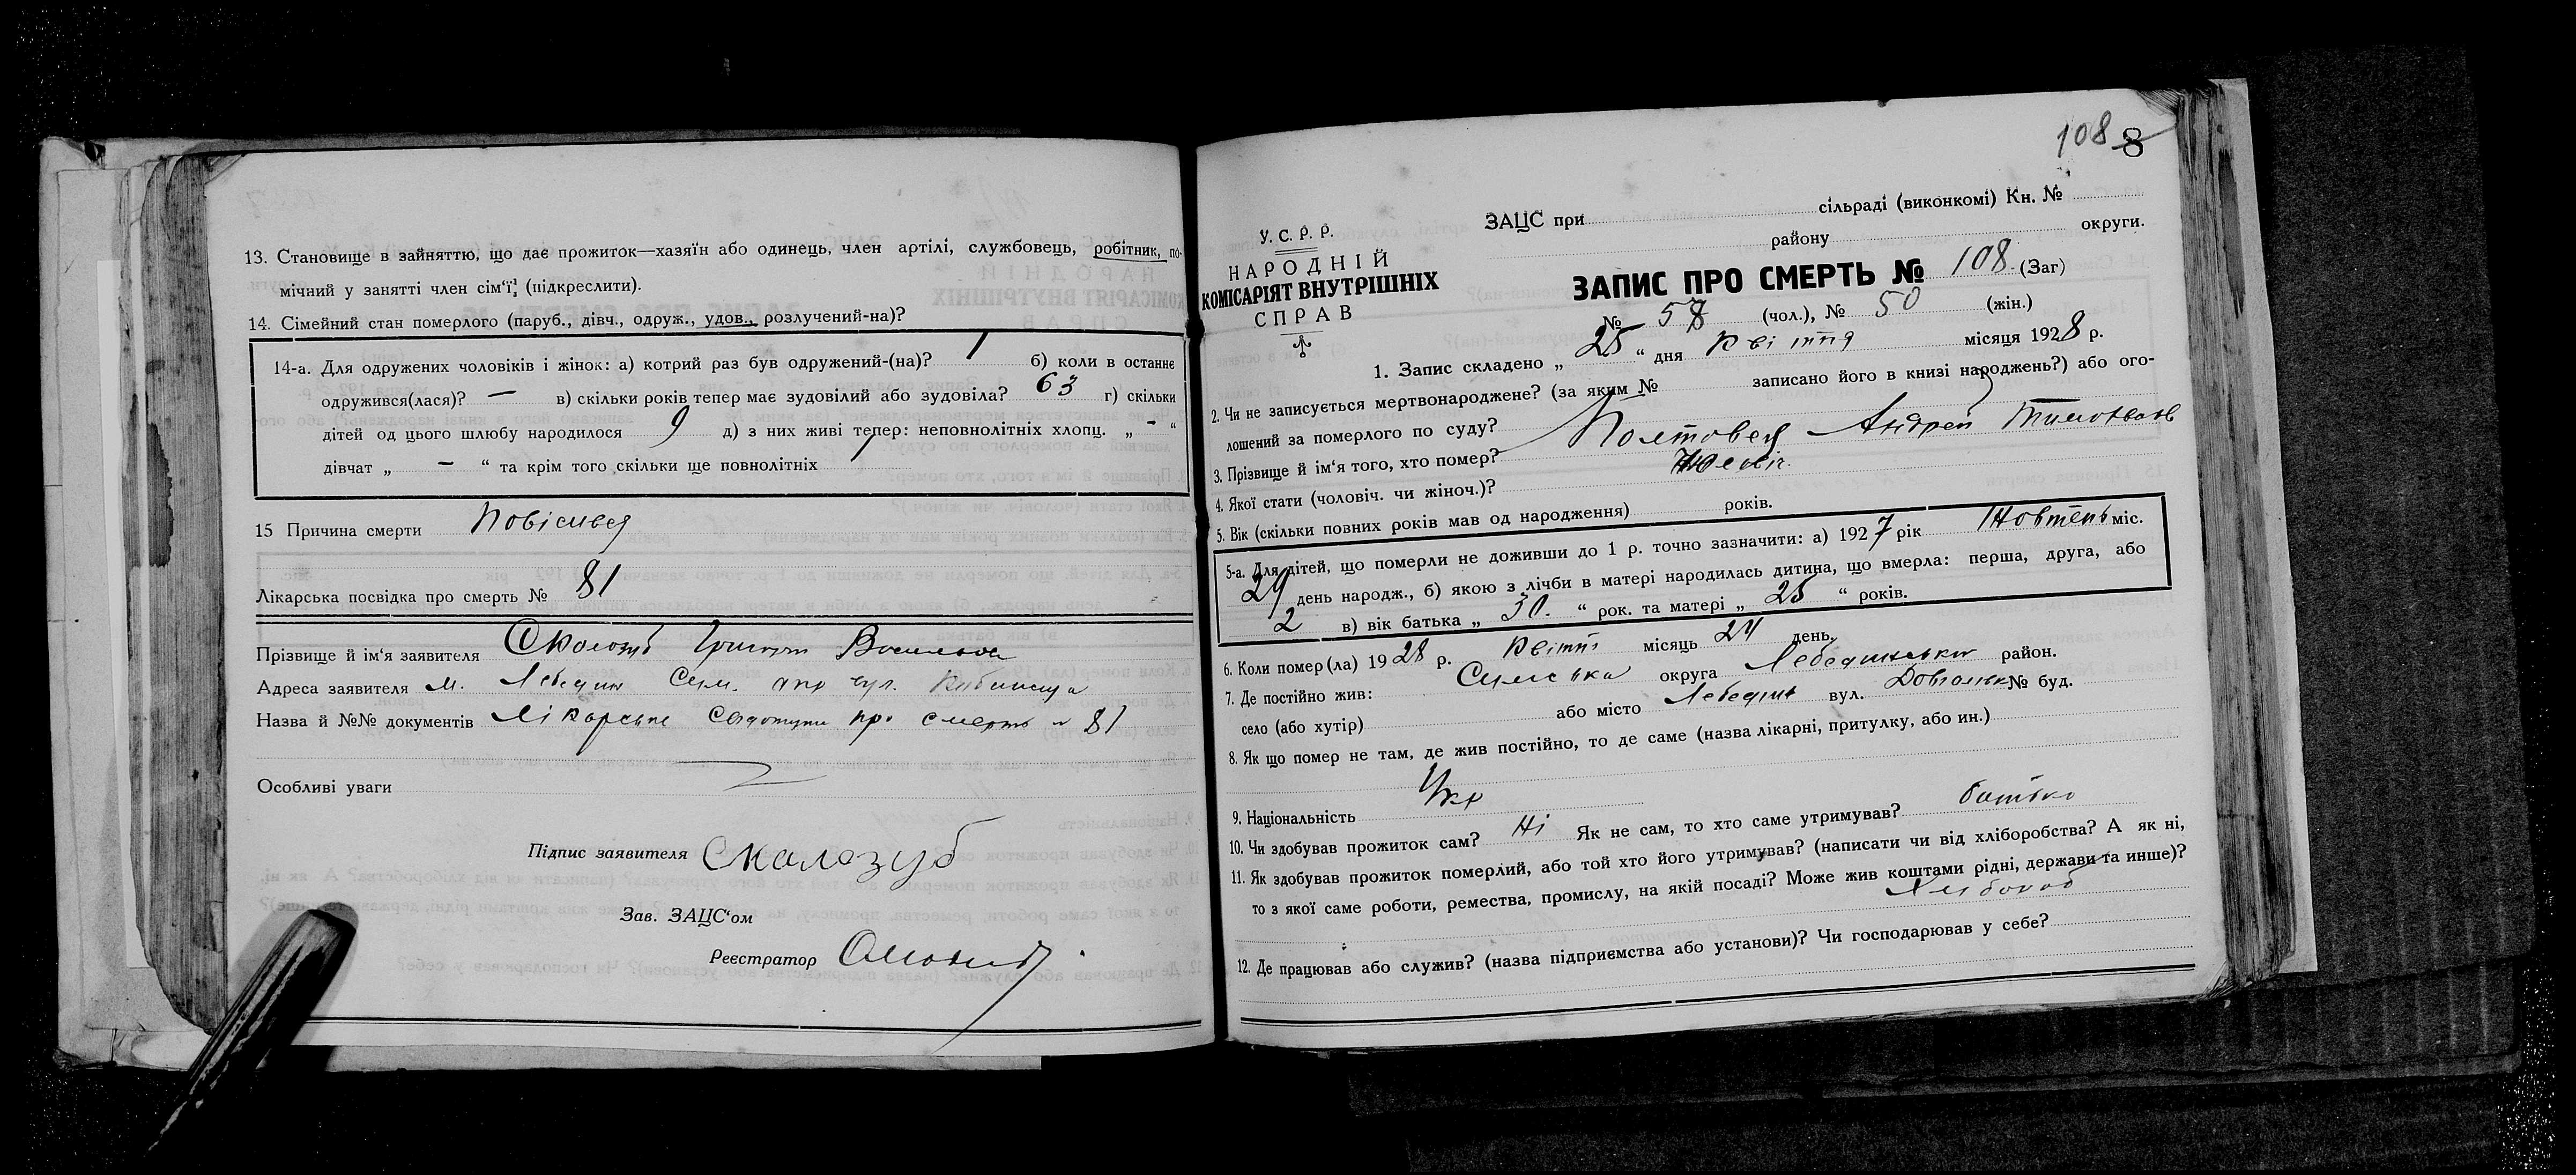 13. Становище в зайняттю, що дає прожиток—хазяїн або одинець, член артілі, службовець, робітник, по-
мічний у занятті член сім‘ї, (підкреслити).
14. Сімейний стан померлого (паруб., дівч., одруж., удов., розлучений-на)?
14-а. Для одружених чоловіків і жінок: а) котрий раз був одружений-(на)? 1 б) коли в останнє
одружився(лася)? — в) скільки років тепер має зудовілий або зудовіла? 63 г) скільки
дітей од цього шлюбу народилося 9 д) з них живі тепер: неповнолітніх хлопц. „ - “
дівчат „ - “ та крім того скільки ще повнолітніх 1
15 Причина смерти Повісився
Лікарська посвідка про смерть № 81
Прізвище й ім‘я заявителя Скалозуб
Адреса заявителя м. Лебедин Сум. окр вул.
Назва й №№ документів Лікарське про смерть № 81
Особливі уваги
Підпис заявителя Скалозуб
Зав. ЗАЦС‘ом
Реєстратор
108 8
У. С. Р. Р.
НАРОДНІЙ
КОМІСАРІЯТ ВНУТРІШНІХ
СПРАВ
ЗАЦС при сільраді (виконкомі) Кн. №
району округи.
ЗАПИС ПРО СМЕРТЬ № 108 (Заг)
№ 58 (чол.), № 50 (жін.)
1. Запис складено „ 25 “ дня квітня місяця 1928 р.
2. Чи не записується мертвонароджене? (за яким № записано його в книзі народжень?) або ого-
лошений за померлого по суду?
3. Прізвище й ім‘я того, хто помер? Андрей
4. Якої стати (чоловіч. чи жіноч.)?
5. Вік (скільки повних років мав од народження) років.
5-а. Для дітей, що померли не доживши до 1 р. точно зазначити: а) 1927 рік Жовтень міс.
29 день народж., б) якою з лічби в матері народилась дитина, що вмерла: перша, друга, або
2 в) вік батька „ 30. “ рок. та матері „ 25 “ років.
6. Коли помер(ла) 1928 р. квітн місяць 24 день.
7. Де постійно жив: Сумська округа Лебединський район.
село (або хутір) або місто Лебедин вул. № буд.
8. Як що помер не там, де жив постійно, то де саме (назва лікарні, притулку, або ин.)
9. Національність Укр
10. Чи здобував прожиток сам? Ні Як не сам, то хто саме утримував? батько
11. Як здобував прожиток померлий, або той хто його утримував? (написати чи від хліборобства? А як ні,
то з якої саме роботи, ремества, промислу, на якій посаді? Може жив коштами рідні, держави та инше)?
Хлібороб
12. Де працював або служив? (назва підприємства або установи)? Чи господарював у себе?